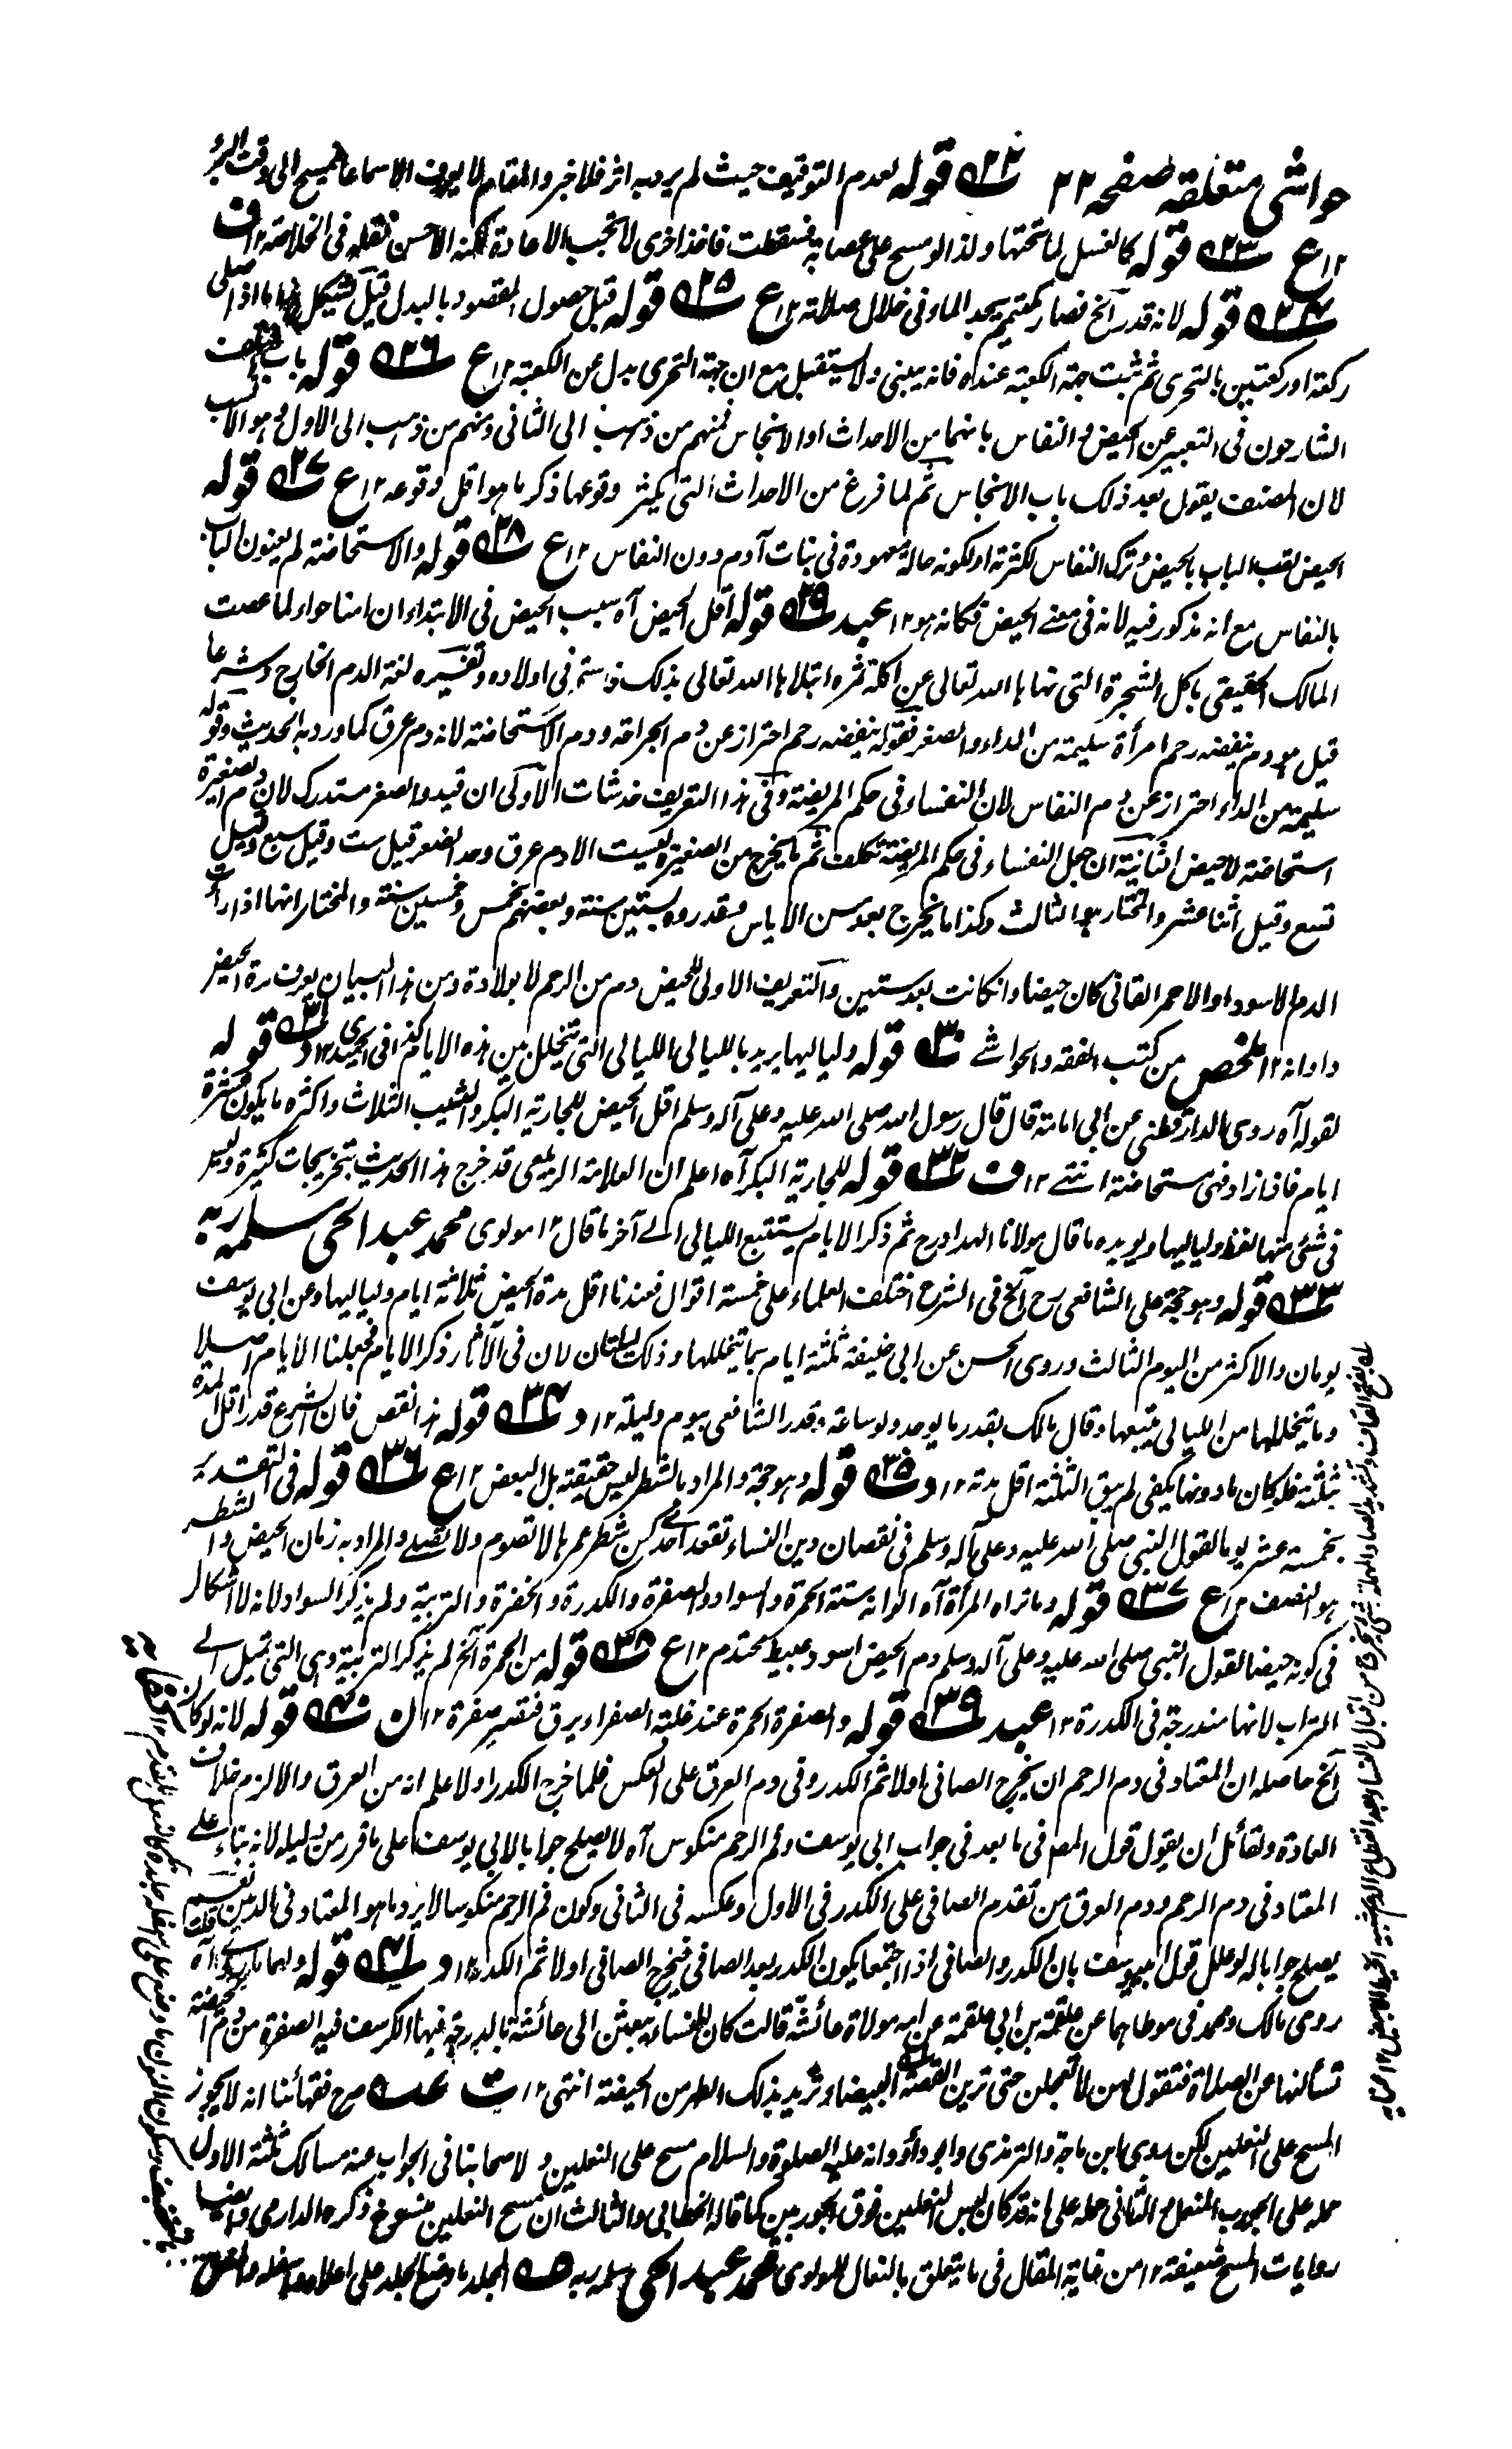 حواشی متعلقه صفحه ٢٢ ٢٢ قوله لعدم التوقيف حيث لم يرد به اثر فلا خبر والمقام لا يعرف الا سماعا فيمسح الى وقت البرء
١٢ع ٢٣ قوله كالغسل لما تحتها ولذا لو مسح على عصابة فسقطت فاخذ اخرى لا تجب الاعادة لكنه الاحسن نقله فى الخلاصة ١٢ف
٢٤ قوله لانه قدر آلخ فصار كمتيمم يجد الماء فى خلال صلاته ١٢ع ٢٥ قوله قبل حصول المقصود بالبدل قيل يشكل بما اذا صلى
ركعة او ركعتين بالتحرى ثم ثبت جهة الكعبة عنده فانه يبنى ولا يستقبل مع ان جهة التحرى بدل عن الكعبة ١٢ع ٢٦ قوله باب اختلف
الشارحون فى التعبير عن الحيض و النفاس بانهما من الاحداث او الانجاس فمنهم من ذهب الى الثانى ومنهم من ذهب الى الاول و هو الانسب
لان المصنف يقول بعد ذلك باب الانجاس ثم لما فرغ من الاحداث التى يكثر وقوعها ذكر ما هو اقل وقوعه ١٢ع ٢٧ قوله
الحيض لقب الباب بالحيض و ترك النفاس لكثرته او لكونه حالة معهودة فى بنات آدم دون النفاس ١٢ع ٢٨ قوله والاستحاضة لم يعنون الباب
بالنفاس مع انه مذكور فيه لانه فى معنے الحيض فكانه هو ١٢عبد ٢٩ قوله اقل الحيض آه سبب الحيض فى الابتداء ان امنا حواء لما عصت
المالك الحقيقى باكل الشجرة التى نهاها الله تعالى عن اكلة ثمره ابتلاها الله تعالى بذلك فاستمر فى اولاده وتفسيره لغة الدم الخارج وشرعا
قيل هو دم ينفضه رحم امرأة سليمة من الداء والصغر فقوله ينفضه رحم احتراز عن دم الجراحة ودم الاستحاضة لانه دم عرق كما ورد به الحديث وقوله
سليمة من الداء احتراز عن دم النفاس لان النفساء فى حكم المريضة وفى هذا التعريف خدشات الاولى ان قيد والصغر مستدرك لان دم الصغيرة
استحاضة لا حيض الثانية ان جعل النفساء فى حكم المريضة تكلف ثم ما يخرج من الصغيرة ليست الا دم عرق وحد الصغر قيل ست وقيل سبع وقيل
تسع وقيل اثنا عشر والمختار هو الثالث وكذا ما يخرج بعد سن الاياس وقدروه بستين سنة وبعضهم بخمس و خمسين سنة والمختار انها اذا رأت
الدم الاسود او الاحمر القانى كان حيضا وانكانت بعد ستين والتعريف الاولى للحيض دم من الرحم لا بولادة ومن هذا البيان يعرف مدة الحيض
واوانه ١٢ ملخص من كتب الفقه والحواشے ٣٠ قوله ولياليها يريد بالليالى الليالى التى تتخلل بين هذه الايام كذا فى الحميدى ١٢د ٣١ قوله
لقوله آه روى الدارقطنى عن ابى امامة قال قال رسول الله صلى الله عليه وعلى آله وسلم اقل الحيض للجارية البكر والثيب الثلاث واكثره ما يكون عشرة
ايام فاذا زاد فهى مستحاضة انتهے ١٢ف ٣٢ قوله للجارية البكر آه اعلم ان العلامة الزيلعى قد خرج هذا الحديث بتخريجات كثيرة وليس
فى شئى منها لفظ ولياليها ويويده ما قال مولانا الهداد رح ثم ذكر الايام يستتبع الليالى الے آخر ما قال ١٢ مولوى محمد عبد الحى سلمه ربه
٣٣ قوله وهو حجة على الشافعى رح آلخ فى الشرح اختلف العلماء على خمسة اقوال فعندنا اقل مدة الحيض ثلاثة ايام ولياليها وعن ابى يوسف
يومان والاكثر من اليوم الثالث وروى الحسن عن ابى حنيفة ثلثة ايام بما يتخللها وذلك ليلتان لان فى الآثار ذكر الايام فجعلنا الايام اصلا
وما يتخللها من الليالى يتبعها وقال مالك بقدر ما يوجد ولو ساعة وقدر الشافعى بيوم وليلة ١٢د ٣٤ قوله هذا نقص فان الشرع قدر اقل المدة
بثلثة فلو كان ما دونها يكفى لم يبق الثلثة اقل مدة ١٢د ٣٥ قوله وهو حجة والمراد بالشطر ليس حقيقة بل البعض ١٢ع ٣٦ قوله فى التقدير
بخمسة عشر يوما لقول النبى صلى الله عليه وعلى آله وسلم فى نقصان دين النساء تقعد احدٰهن شطر عمرها لا تصوم ولا تصلے والمراد به زمان الحيض والشطر
هو النصف ١٢ع ٣٧ قوله وما تراه المرأة آه الوانه ستة الحمرة والسواد والصفرة والكدرة والخضرة والتربية ولم يذكر السواد لانه لا اشكال
فى كونه حيضا لقول النبى صلى الله عليه وعلى آله وسلم دم الحيض اسود عبيط محتدم ١٢ع ٣٨ قوله من الحمرة آلخ لم يذكر التربية وهى التى تميل الے
التراب لانها مندرجة فى الكدرة ١٢عبد ٣٩ قوله والصفرة الحمرة عند غلبة الصفراء يرق فتصير صفرة ١٢ن ٤٠ قوله لانه لو كان
آلخ حاصله ان المعتاد فى دم الرحم ان يخرج الصافى اولا ثم الكدر وفى دم العرق على العكس فلما خرج الكدر اولا علم انه من العرق والا لزم خلاف
العادة ولقائل ان يقول قول المصـ فى ما بعد فى جواب ابى يوسف وفم الرحم منكوس آه لا يصلح جوابا لابى يوسف على ما قرر من دليله لانه بناء علے
المعتاد فى دم الرحم ودم العرق من تقدم الصافى على الكدر فى الاول وعكسه فى الثانى وكون فم الرحم منكوسا لا يرد ما هو المعتاد فى الدمين نعم
يصلح جوابا له لو علل قول ابيوسف بان الكدر والصافى اذا اجتمعا يكون الكدر بعد الصافى فيخرج الصافى اولا ثم الكدر ١٢د ٤١ قوله ولهما ما روى آه
روى مالك ومحمد فى موطاهما عن علقمة بن ابى علقمة عن امه مولاة عائشة قالت كان النساء يبعثن الى عائشة بالدرجة فيها الكرسف فيه الصفرة من دم الحيضة
تسألنها عن الصلاة فتقول لهن لا تعجلن حتى ترين القصة البيضاء تريد بذلك الطهر من الحيضة انتهى ١٢ت صرح فقهائنا انه لا يجوز
المسح على النعلين لكن روى ابن ماجة والترمذى وابوداؤد انه عليه الصلوة والسلام مسح على النعلين ولاصحابنا فى الجواب عنه مسالك ثلثة الاول
حمله على الجورب المنعل والثانى حمله على انه قد كان لبس النعلين فوق الجوربين كما قاله الخطابى والثالث ان مسح النعلين منسوخ ذكره الدارمى وايضا
روايات المسح ضعيفة ١٢ من غاية المقال فى ما يتعلق بالنعال للمولوى محمد عبد الحى سلمه ربه المجلد ما وضع الجلد على اعلاه واسفله والمنعل